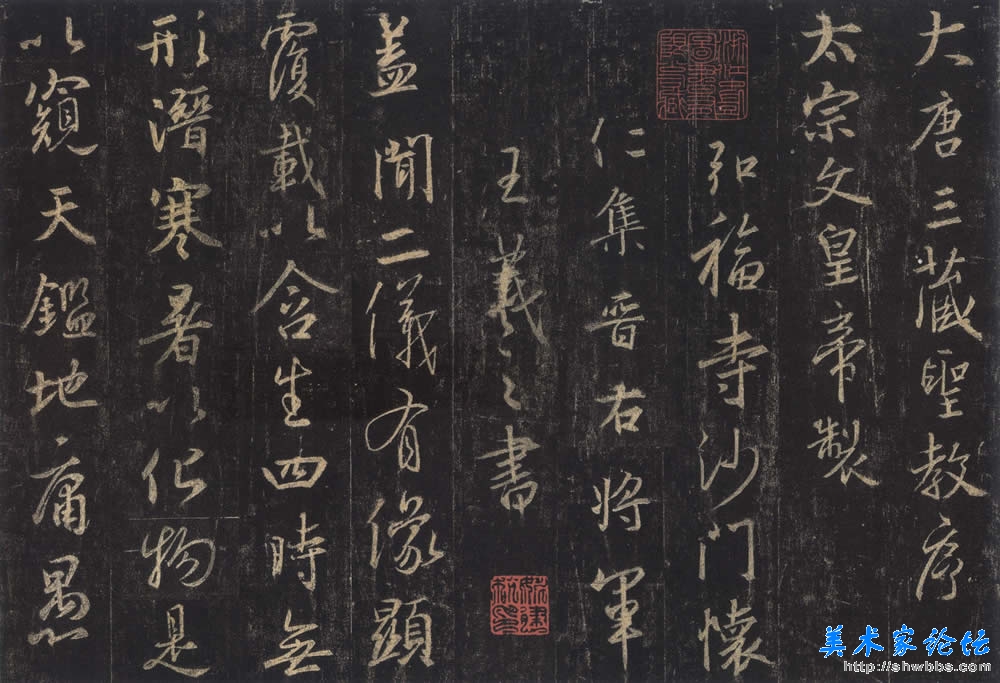 大唐三藏聖教序
太宗文皇帝製
弘福寺沙門懷
仁集晉右將軍
王羲之書
蓋聞二儀有像顯
覆載以含生四時無
形潛寒暑以化物是
以窺天鑑地庸愚
美术家论坛
http://shwbbs.com